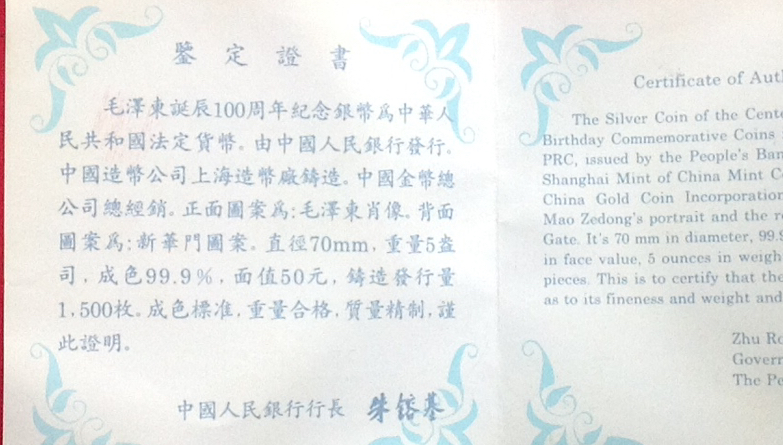 鑒定證書
毛澤東誕辰100周年紀念銀幣爲中華人
民共和國法定貨幣。由中國人民銀行發行。
中國造幣公司上海造幣廠鑄造。中國金幣總
公司總經銷。正面圖案爲:毛澤東肖像。背面
圖案爲:新華門圖案。直徑70mm,重量5盎
司,成色99.9%,面值50元,鑄造發行量
1,500枚。成色標准,重量合格,質量精制,謹
此證明。
中國人民銀行行長 朱鎔基
Certificate of Aut
The Silver Coin of the Cente
Birthday Commemorative Coins
PRC, issued by the People's Ban
Shanghai Mint of China Mint C
China Gold Coin Incorporation
Mao Zedong's portrait and the r
Gate. It's 70 mm in diameter, 99.9
in face value, 5 ounces in weigh
pieces. This is to certify that the
as to its fineness and weight and
Zhu Ro
Govern
The Pe